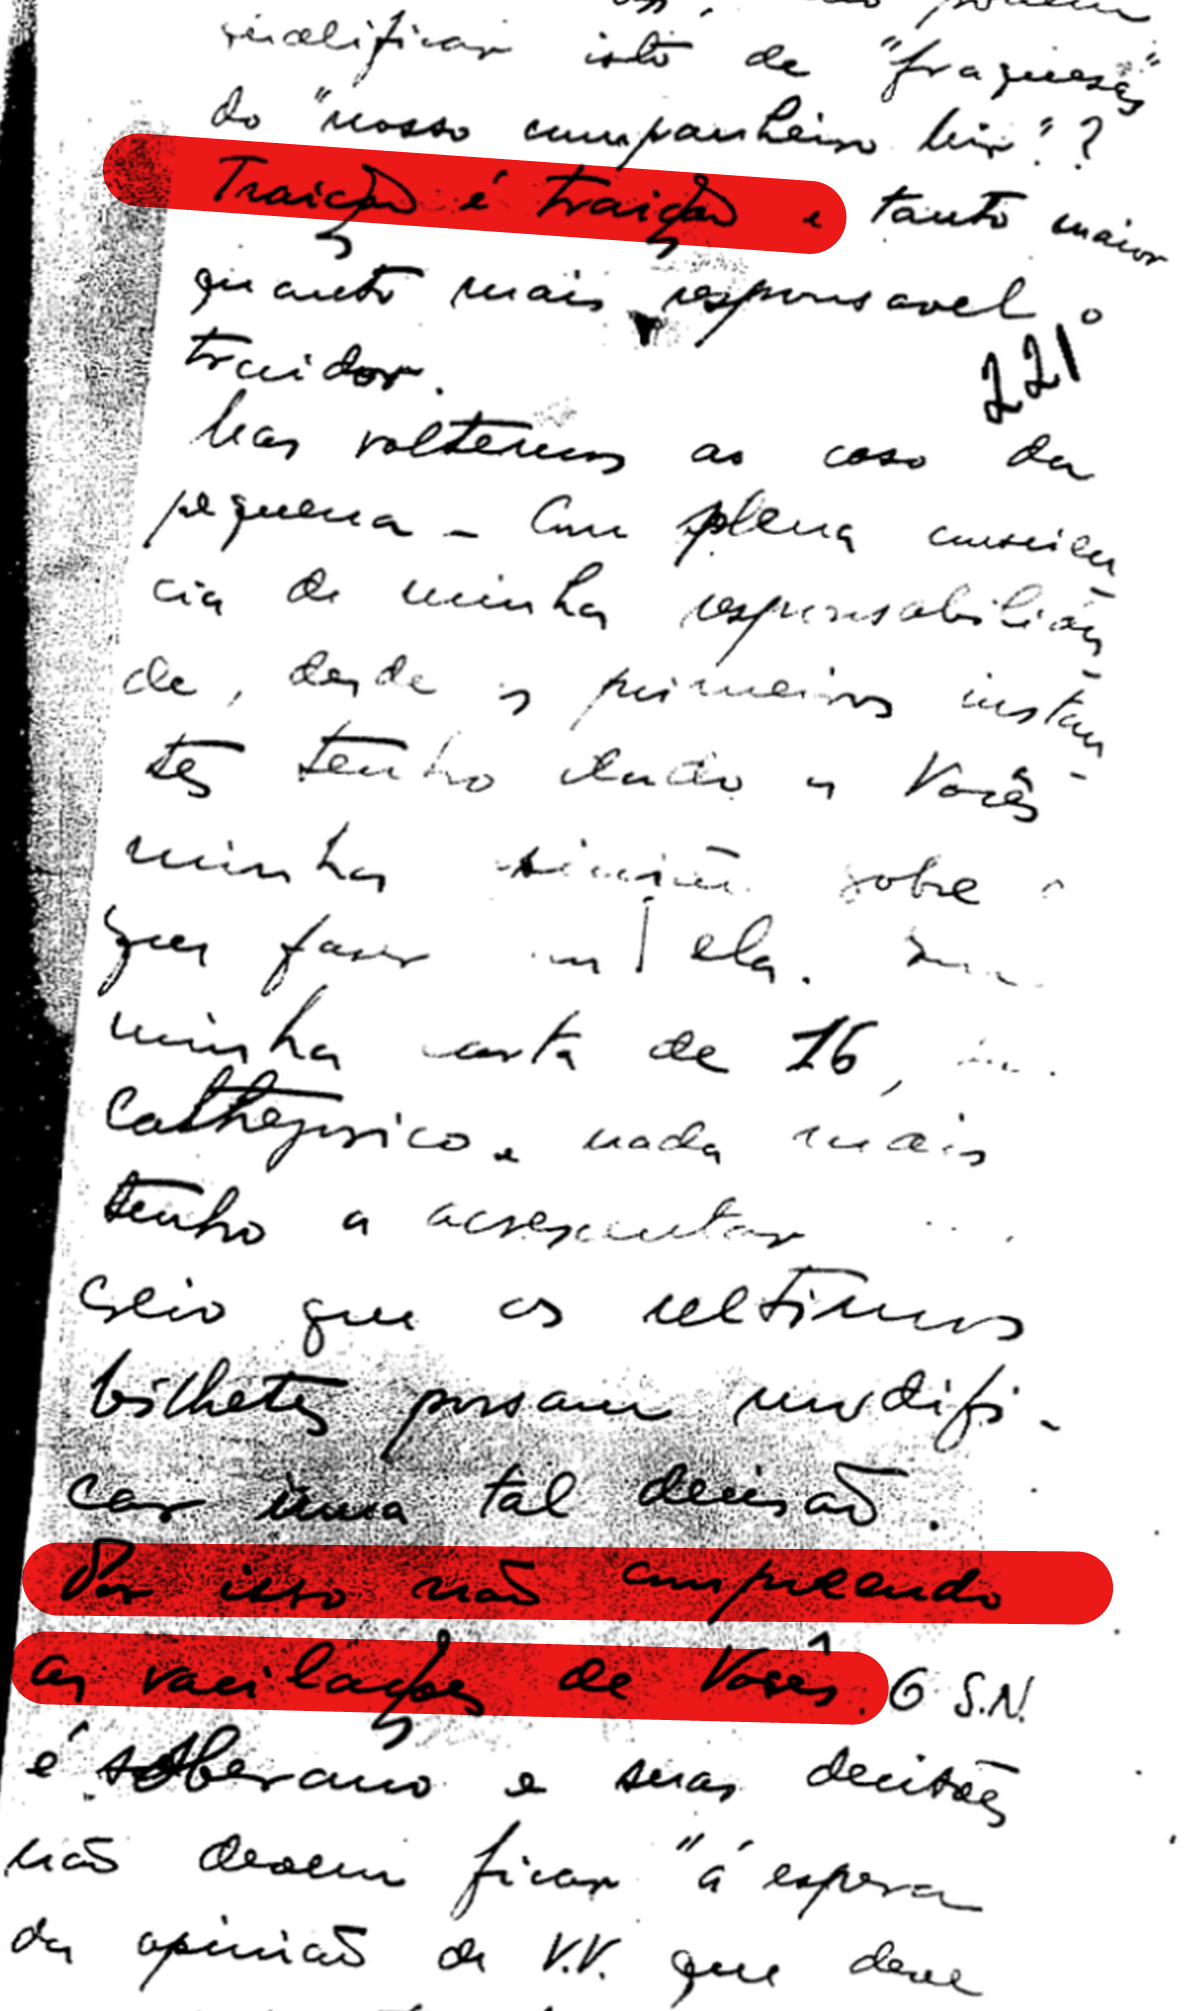 qualificar isto de "fraquesas"
do "nosso companheiro Mir"?
Traição é traição e tanto maior
quanto mais responsavel o
traidor.
221
Mas voltemos ao caso da
pequena - Com plena conscien-
cia de minha responsabilida-
de, desde os primeiros instan-
tes tenho dado a Vocês
minha opinião sobre o
que fazer ela. Em
minha carta de 16,
cathegorico e nada mais
tenho a acrescentar
creio que os ultimos
bilhetes possam modifi-
car uma tal decisão.
Por isso não compreendo
as vacilações de Vocês. O S.N.
é soberano e suas decisões
não devem ficar "á espera
da opinião de V.V. que deve